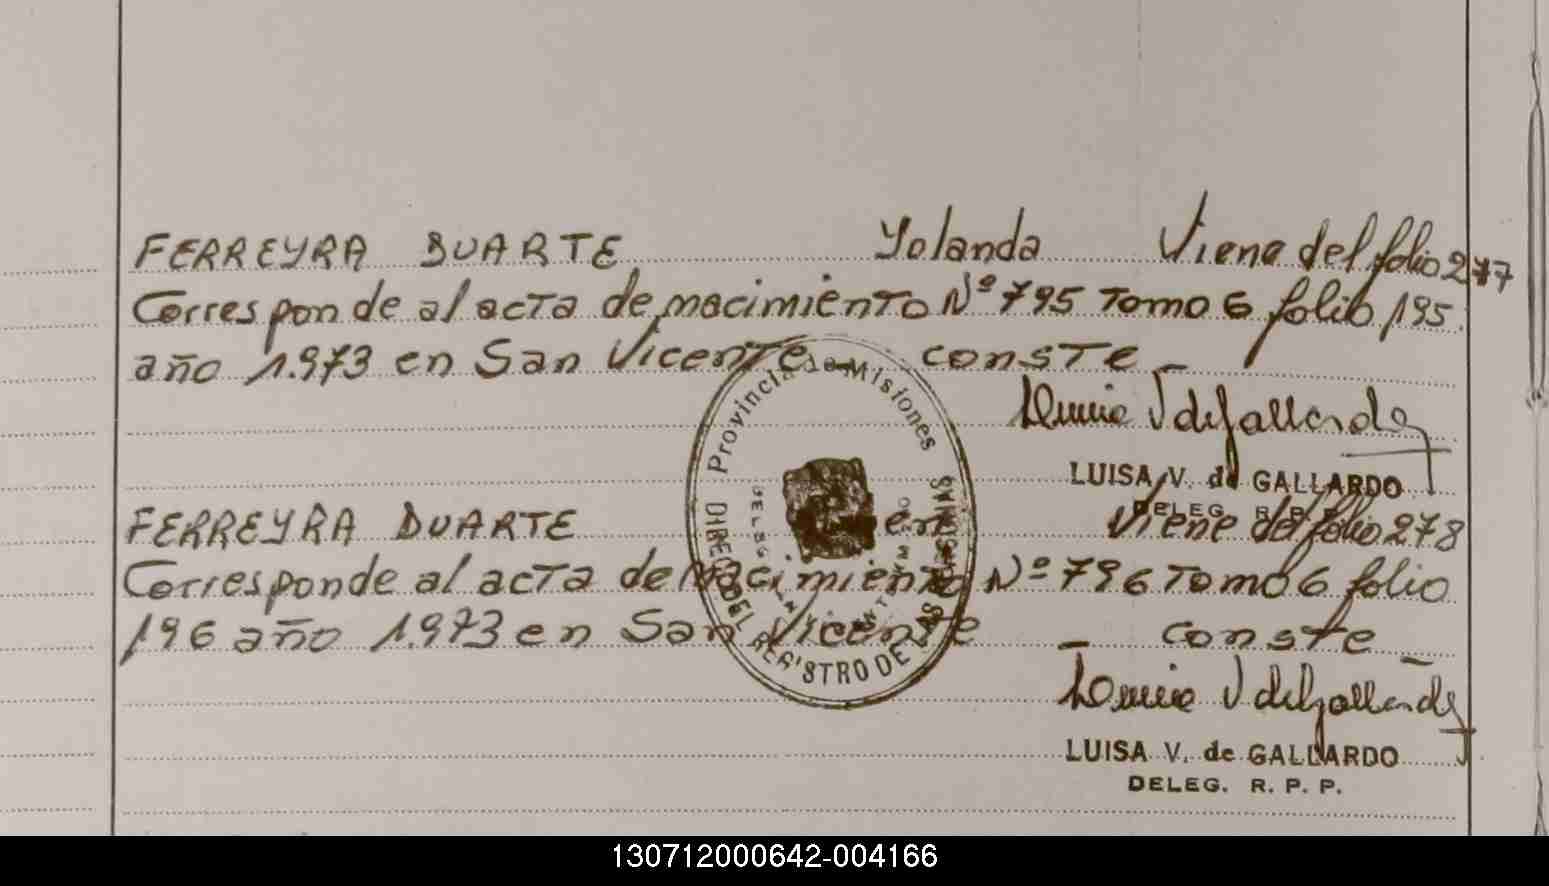 FERREYRA DUARTE Yolanda Viene del folio 277
Corresponde al acta de nacimiento Nº 795 Tomo 6 folio 195
año 1.973 en San Vicente - conste -
LUISA V. de GALLARDO
DELEG. R. P. P.
FERREYRA DUARTE Viene del folio 278
Corresponde al acta de nacimiento Nº 796 Tomo 6 folio
196 año 1.973 en San Vicente - conste -
LUISA V. de GALLARDO
DELEG. R. P. P.
Provincia de Misiones
DEL REGISTRO DE LAS
130712000642-004166